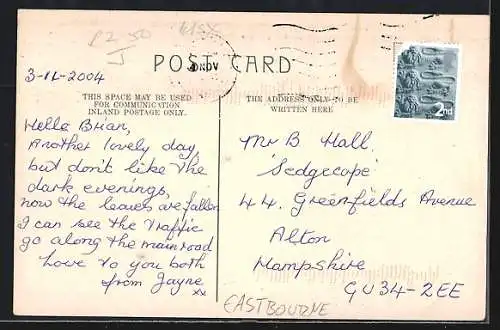 £2.50
POST CARD
NOV
2nd
3-11-2004
THIS SPACE MAY BE USED
FOR COMMUNICATION
INLAND POSTAGE ONLY.
THE ADDRESS ONLY TO BE
WRITTEN HERE
Hello Brian,
Another lovely day,
but don't like the
dark evenings,
now the leaves are fallen
I can see the traffic
go along the mainroad
Love to you both
from Jayne
xx
Mr B Hall.
'Sedgecope'
44. Greenfields Avenue
Alton
Hampshire
GU34-2EE
EASTBOURNE